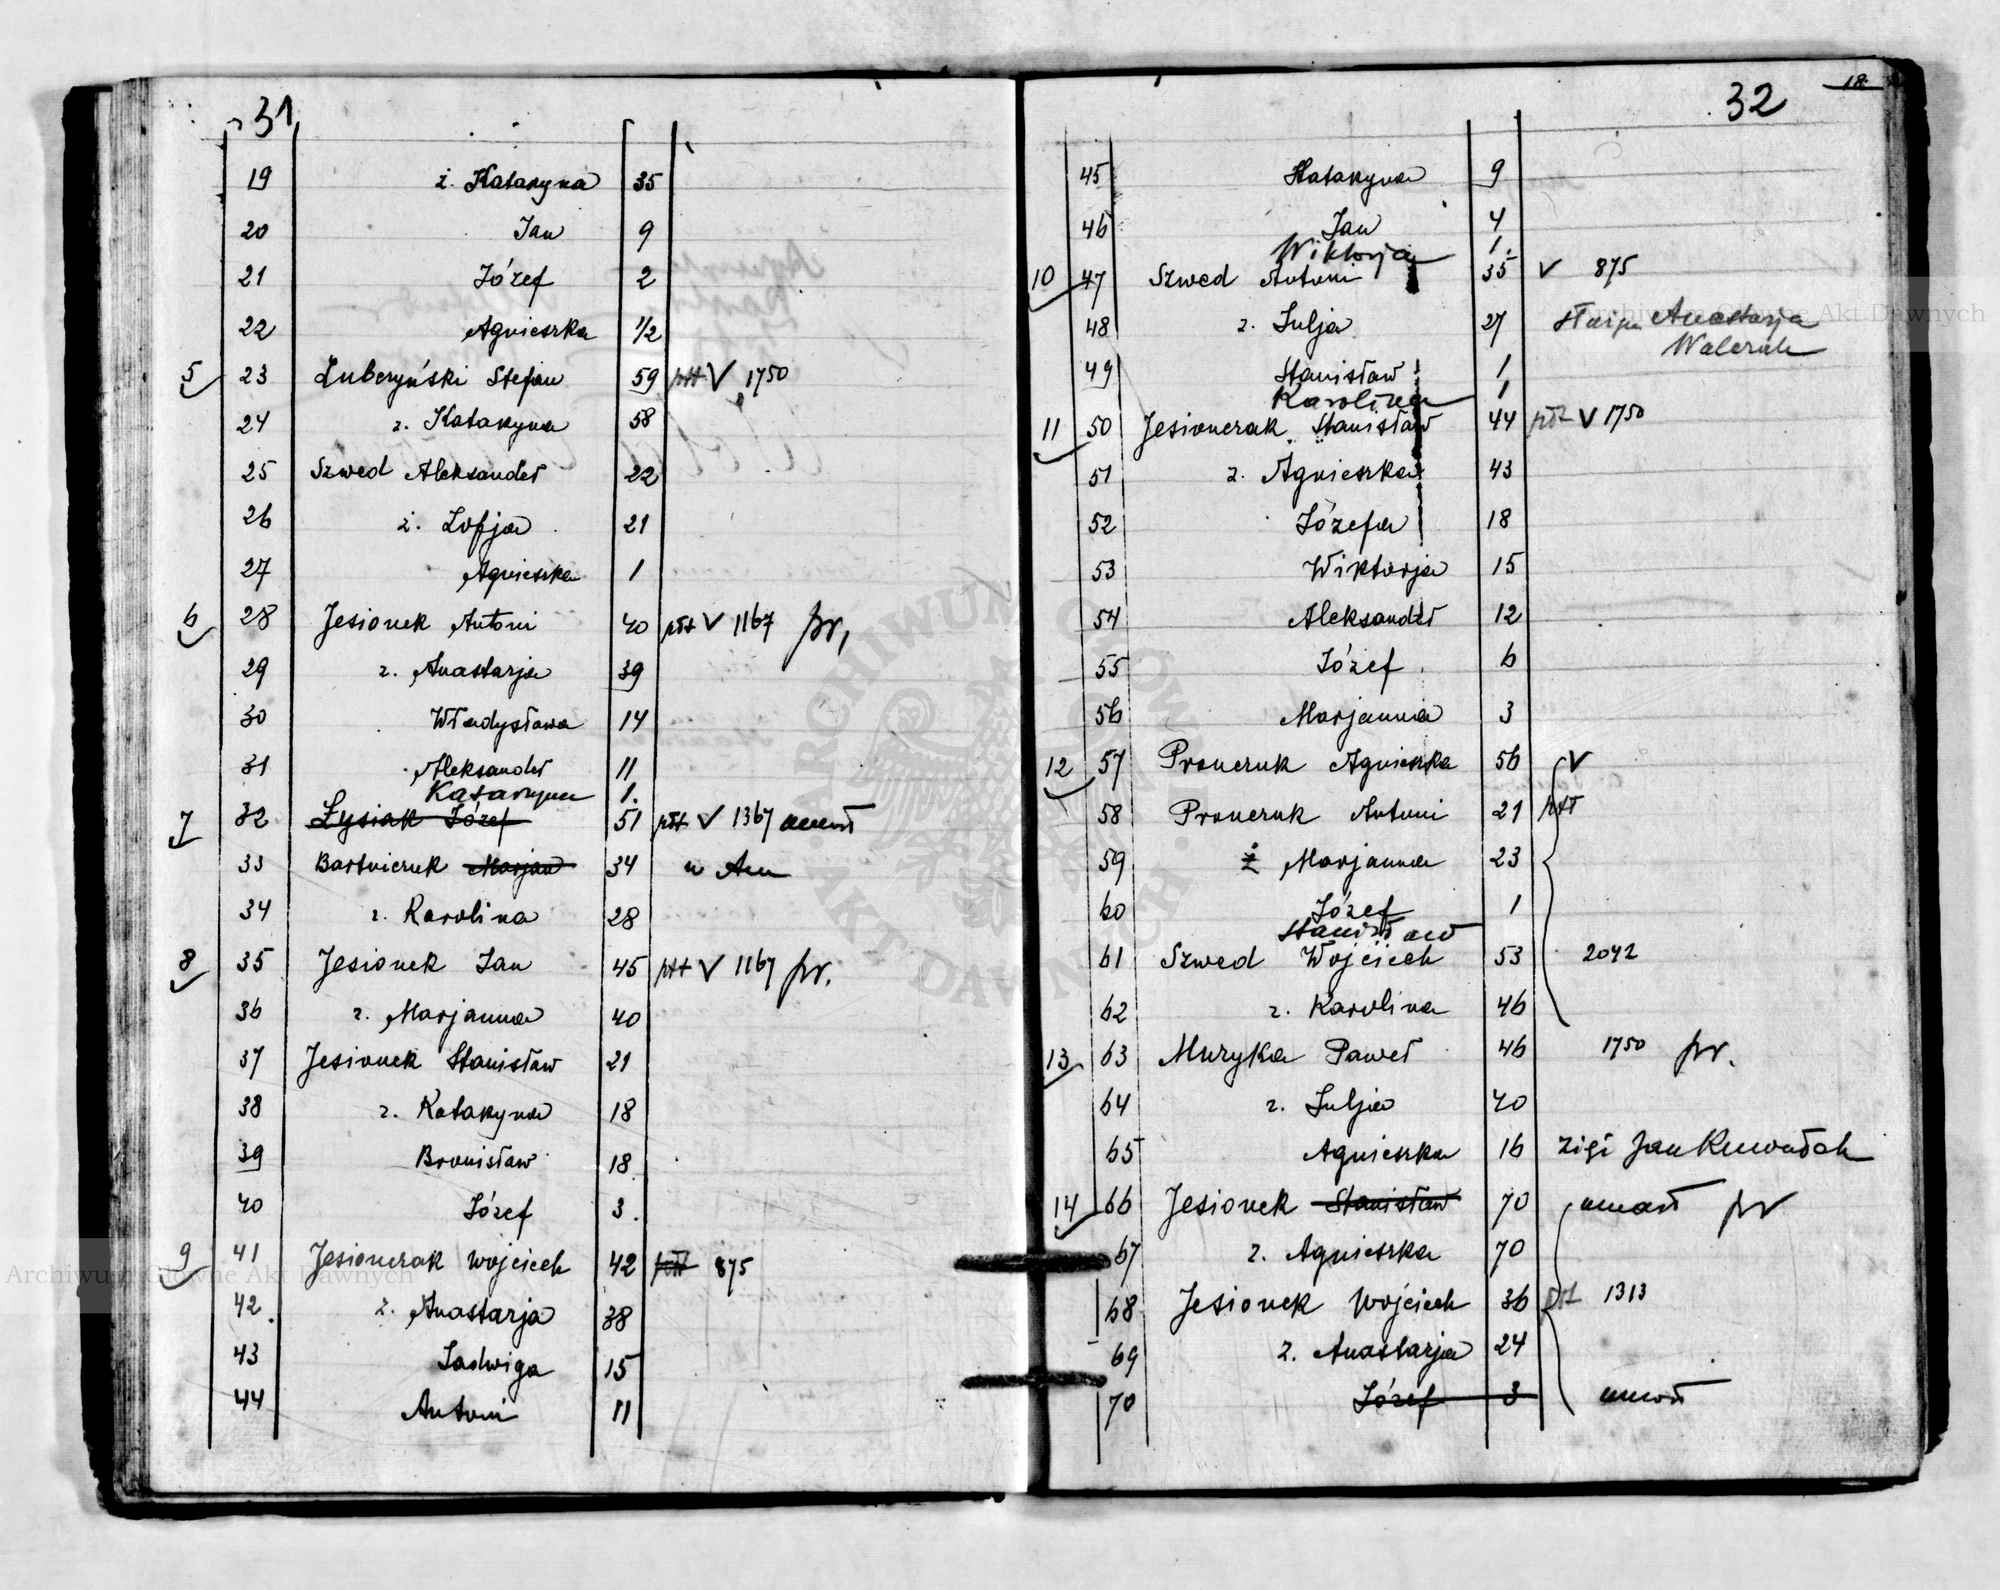 31
19 ż. Katarzyna 35
20 Jan 9
21 Józef 2
22 Agnieszka 1/2
5 23 Lubczyński Stefan 59 płt V 1750
24 ż. Katarzyna 58
25 Szwed Aleksander 22
26 ż. Zofja 21
27 Agnieszka 1
6 28 Jesionek Antoni 40 płt V 1167 pr,
29 ż. Anastazja 39
30 Władysława 14
31 Aleksander 11
Katarzyna 1.
7 32 Łysiak Józef 51 płt V 1367 umarł
33 Bartniczuk Marjan 34 w Am
34 ż. Karolina 28
8 35 Jesionek Jan 45 płt V 1167 pr.
36 ż. Marjanna 40
37 Jesionek Stanisław 21
38 ż. Katarzyna 18
39 Bronisław 18
40 Józef 3.
9 41 Jesionczak Wojciech 42 płt 875
42. ż. Anastazja 38
43 Jadwiga 15
44 Antoni 11
32
18
45 Katarzyna 9
46 Jan 4
Wiktorja 1.
10 47 Szwed Antoni 35 V 875
48 ż. Julja 27 Anastazja
49 Stanisław 1
Karolina 1
11 50 Jesionczak Stanisław 44 płt V 1750
51 ż. Agnieszka 43
52 Józefa 18
53 Wiktorja 15
54 Aleksander 12
55 Józef 6
56 Marjanna 3
12 57 Pronczuk Agnieszka 56 V
58 Pronczuk Antoni 21 płt
59 ż Marjanna 23
60 Józef 1
Stanisław
61 Szwed Wojciech 53 2042
62 ż. Karolina 46
13 63 Muzyka Paweł 46 1750 pr.
64 ż. Julja 40
65 Agnieszka 16 zięć Jan
14 66 Jesionek Stanisław 70 umarł pr
67 ż. Agnieszka 70
68 Jesionek Wojciech 36 płt 1313
69 ż. Anastazja 24
70 Józef 3 umarł
Archiwum Główne Akt Dawnych
Archiwum Główne Akt Dawnych
ARCHIWUM GŁÓWNE AKT DAWNYCH